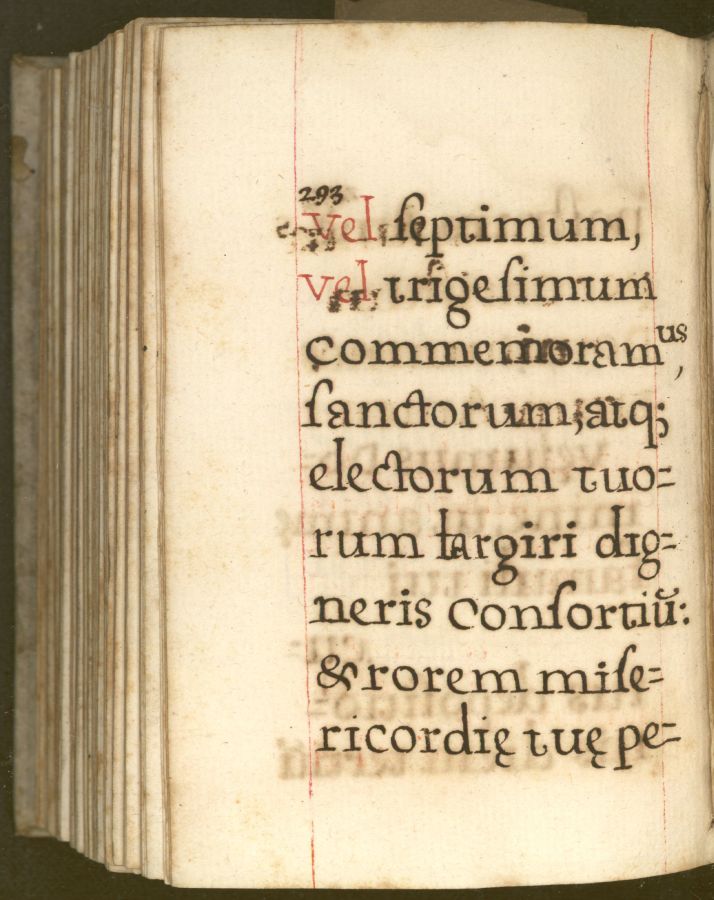 293
vel ſeptimum,
vel trigeſimum
commemoramus,
ſanctorum, atq;
electorum tuo=
rum largiri dig=
neris Conſortiũ:
& rorem miſe=
ricordię tuę pe=